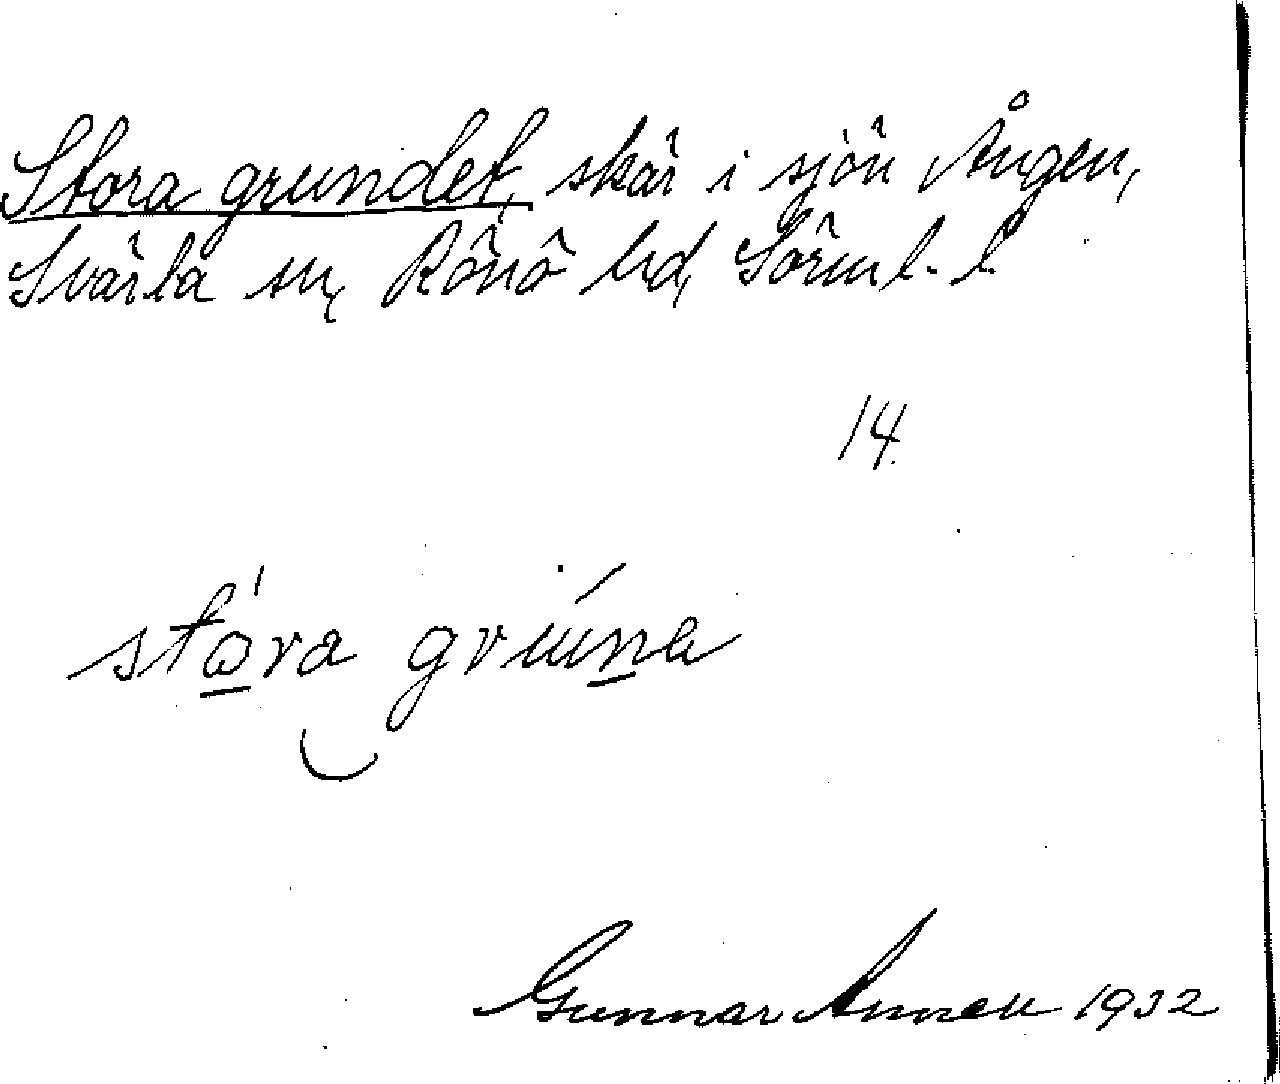 Stora grundet, skär i sjön Ången,
Svärta sn, Rönö hd, Sörml. l.
14.
stọ́ra grúna
Gunnar Annell 1932